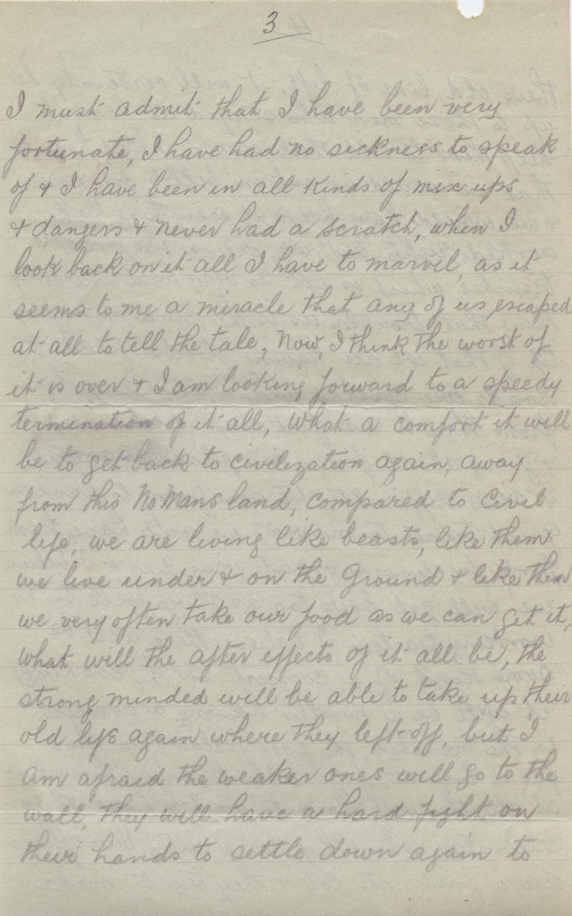 3
I must admit that I have been very
fortunate, I have had no sickness to speak
of & I have been in all kinds of mix ups
& dangers & never had a scratch, when I
look back on it all I have to marvel, as it
seems to me a miracle that any of us escaped
at all to tell the tale, Now, I think the worst of
it is over & I am looking forward to a speedy
termination of it all, What a comfort it will
be to get back to civilization again, away
from this No Mans land, compared to Civil
life, we are living like beasts, like them
we live under & on the Ground & like them
we very often take our food as we can get it,
What will the after effects of it all be, the
strong minded will be able to take up their
old life again where they left off, but I
am afraid the weaker ones will go to the
wall, they will have a hard fight on
their hands to settle down again to